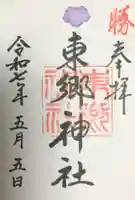 勝
奉拝
東郷神社
令和七年五月五日